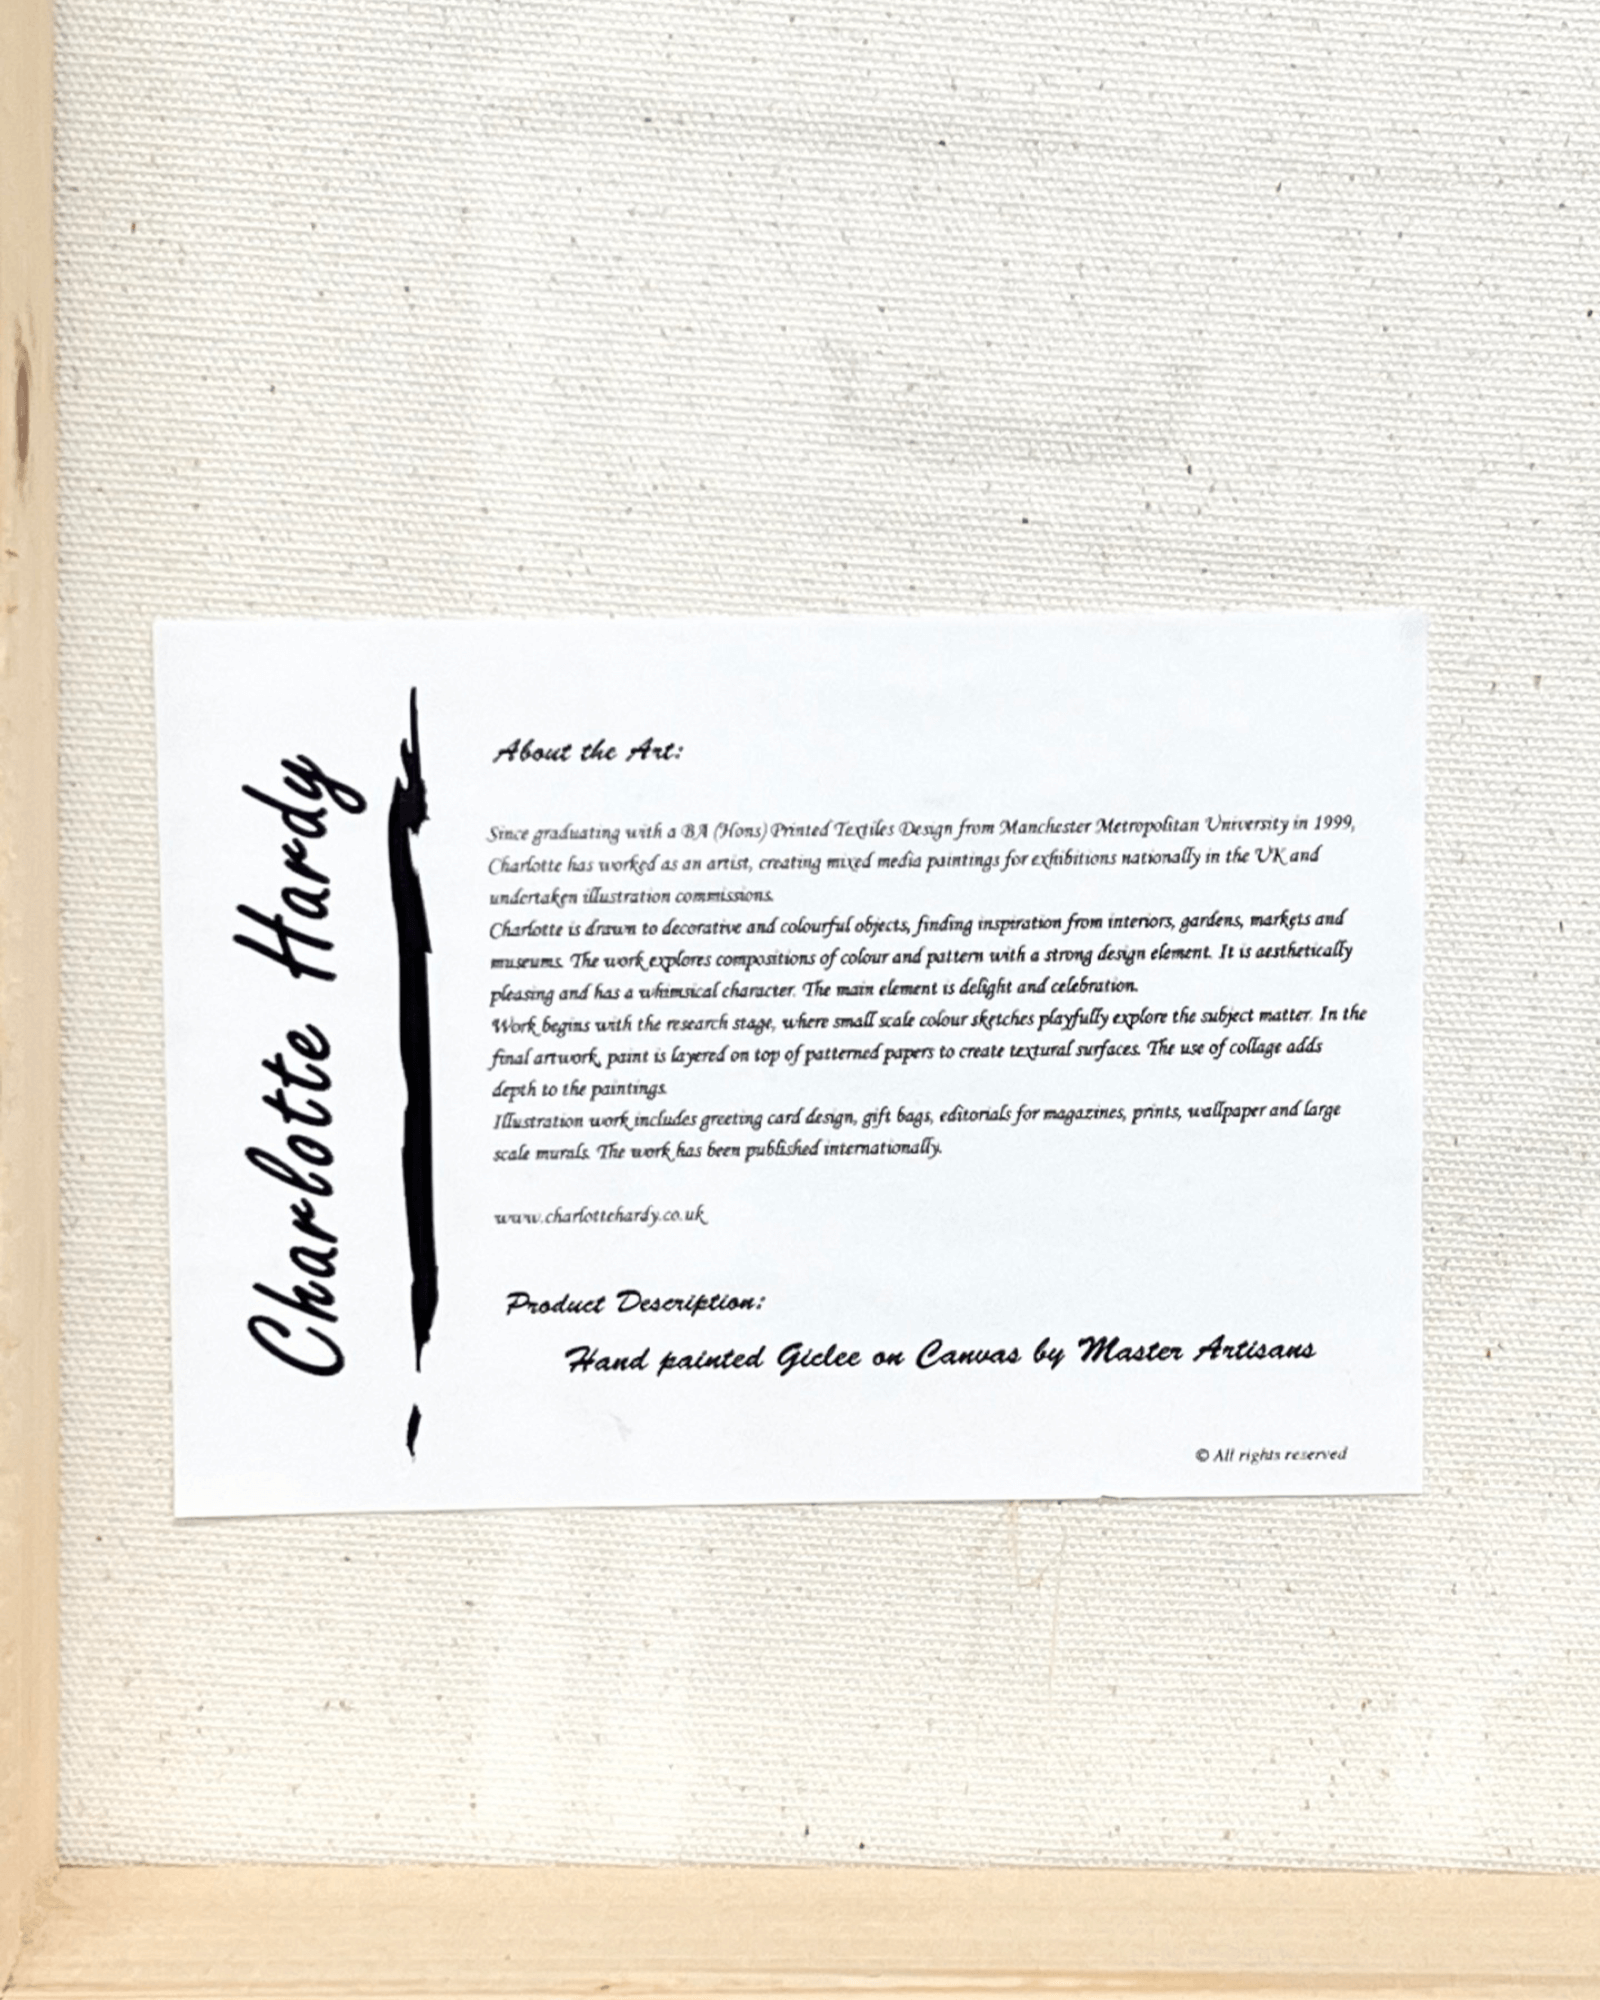 Charlotte Hardy
About the Art:
Since graduating with a BA (Hons) Printed Textiles Design from Manchester Metropolitan University in 1999,
Charlotte has worked as an artist, creating mixed media paintings for exhibitions nationally in the UK and
undertaken illustration commissions.
Charlotte is drawn to decorative and colourful objects, finding inspiration from interiors, gardens, markets and
museums. The work explores compositions of colour and pattern with a strong design element. It is aesthetically
pleasing and has a whimsical character. The main element is delight and celebration.
Work begins with the research stage, where small scale colour sketches playfully explore the subject matter. In the
final artwork, paint is layered on top of patterned papers to create textural surfaces. The use of collage adds
depth to the paintings.
Illustration work includes greeting card design, gift bags, editorials for magazines, prints, wallpaper and large
scale murals. The work has been published internationally.
www.charlottehardy.co.uk
Product Description:
Hand painted Giclee on Canvas by Master Artisans
© All rights reserved